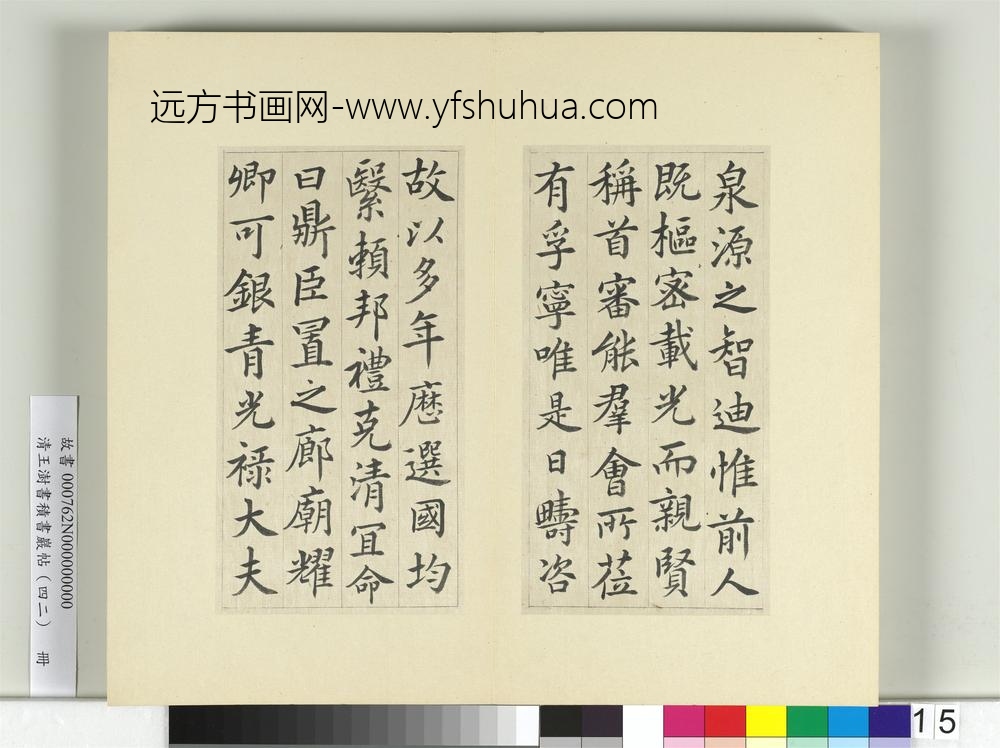 远方书画网-www.yfshuhua.com
泉源之智迪惟前人
既樞密載光而親賢
稱首審能羣會所莅
有孚寧唯是日疇咨
故以多年歷選國均
繄頼邦禮克清冝命
曰鼎臣置之廊廟耀
卿可銀青光祿大夫
故書000762N000000000
清王澍書積書巖帖(四二) 冊
15